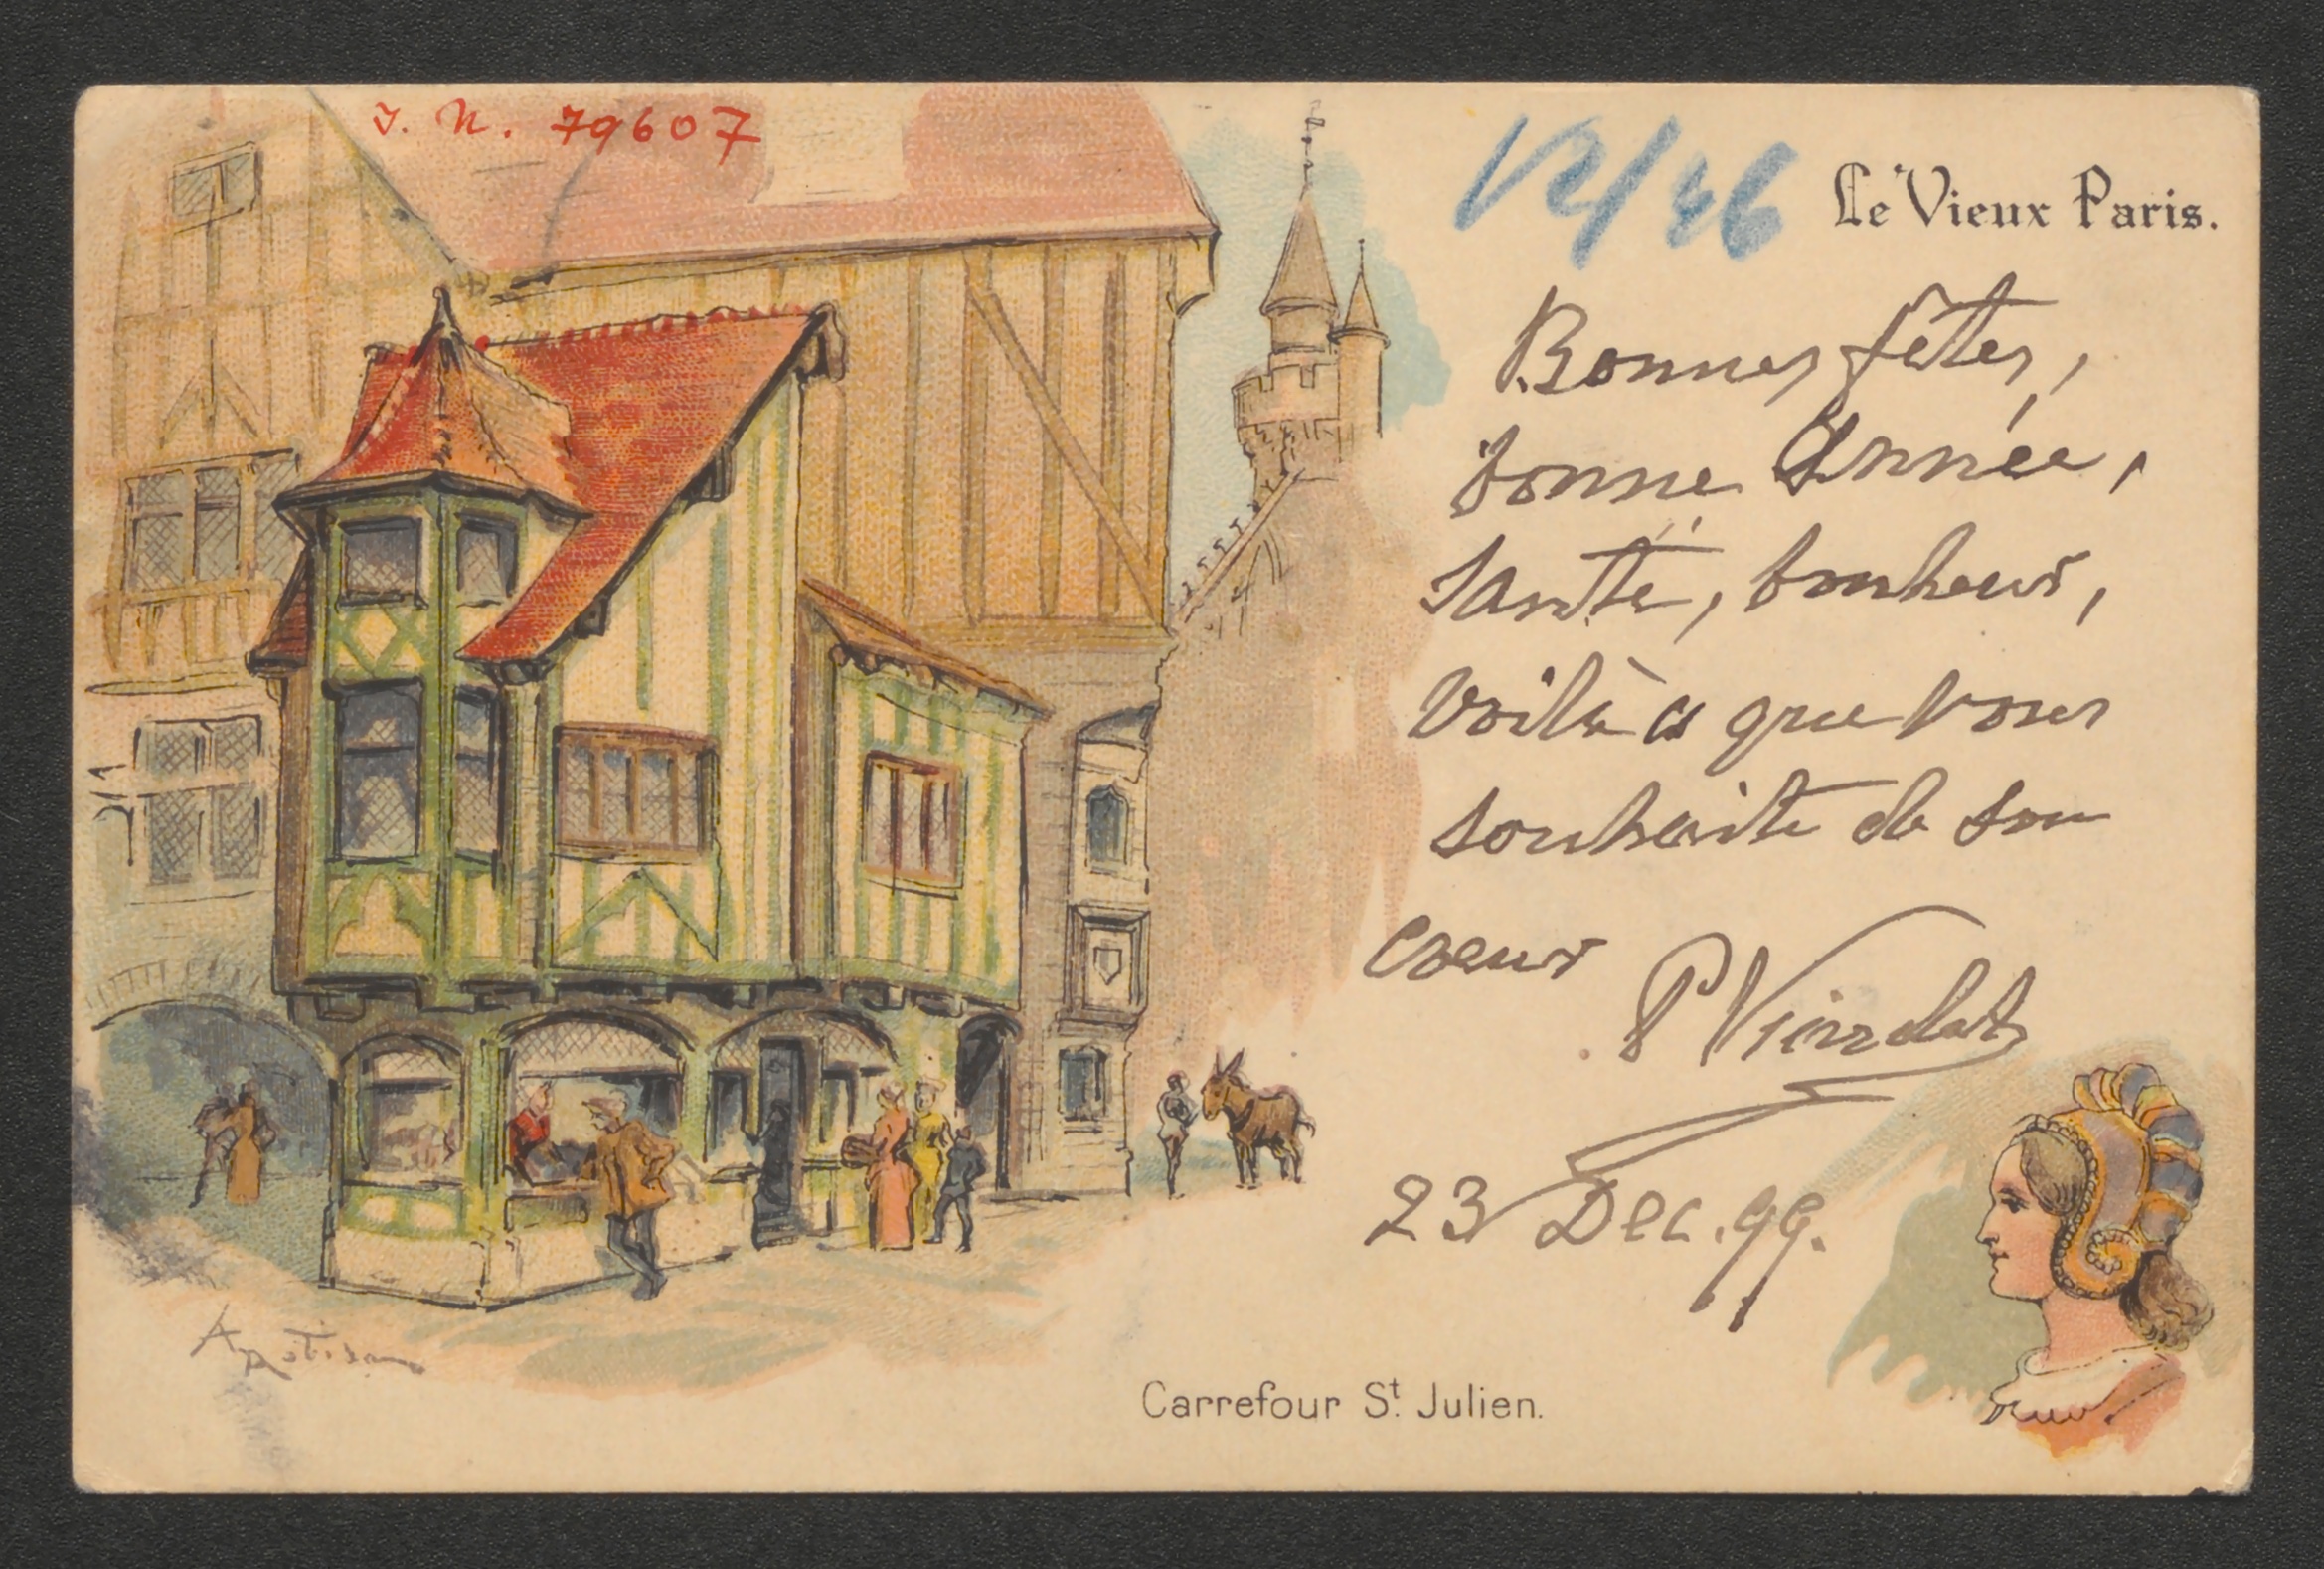 J. N. 79607
Le Vieux Paris.
Bonnes fêtes,
bonne Année,
santé, bonheur,
voilà ce que vous
souhaite de son
coeur
23 Dec. 99.
Carrefour St. Julien.